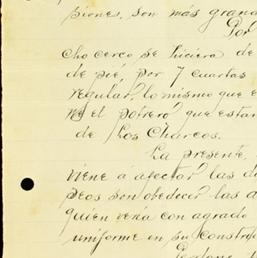 piones, son más grand
Por
cho cerco se hiciera de
de pié, por 7 cuartas
regular, lo mismo que e
el potrero que estan
de Los Charcos.
La presente,
viene a afectar las d
seos son obedecer las a
quien vería con agrado
uniforme en su constru